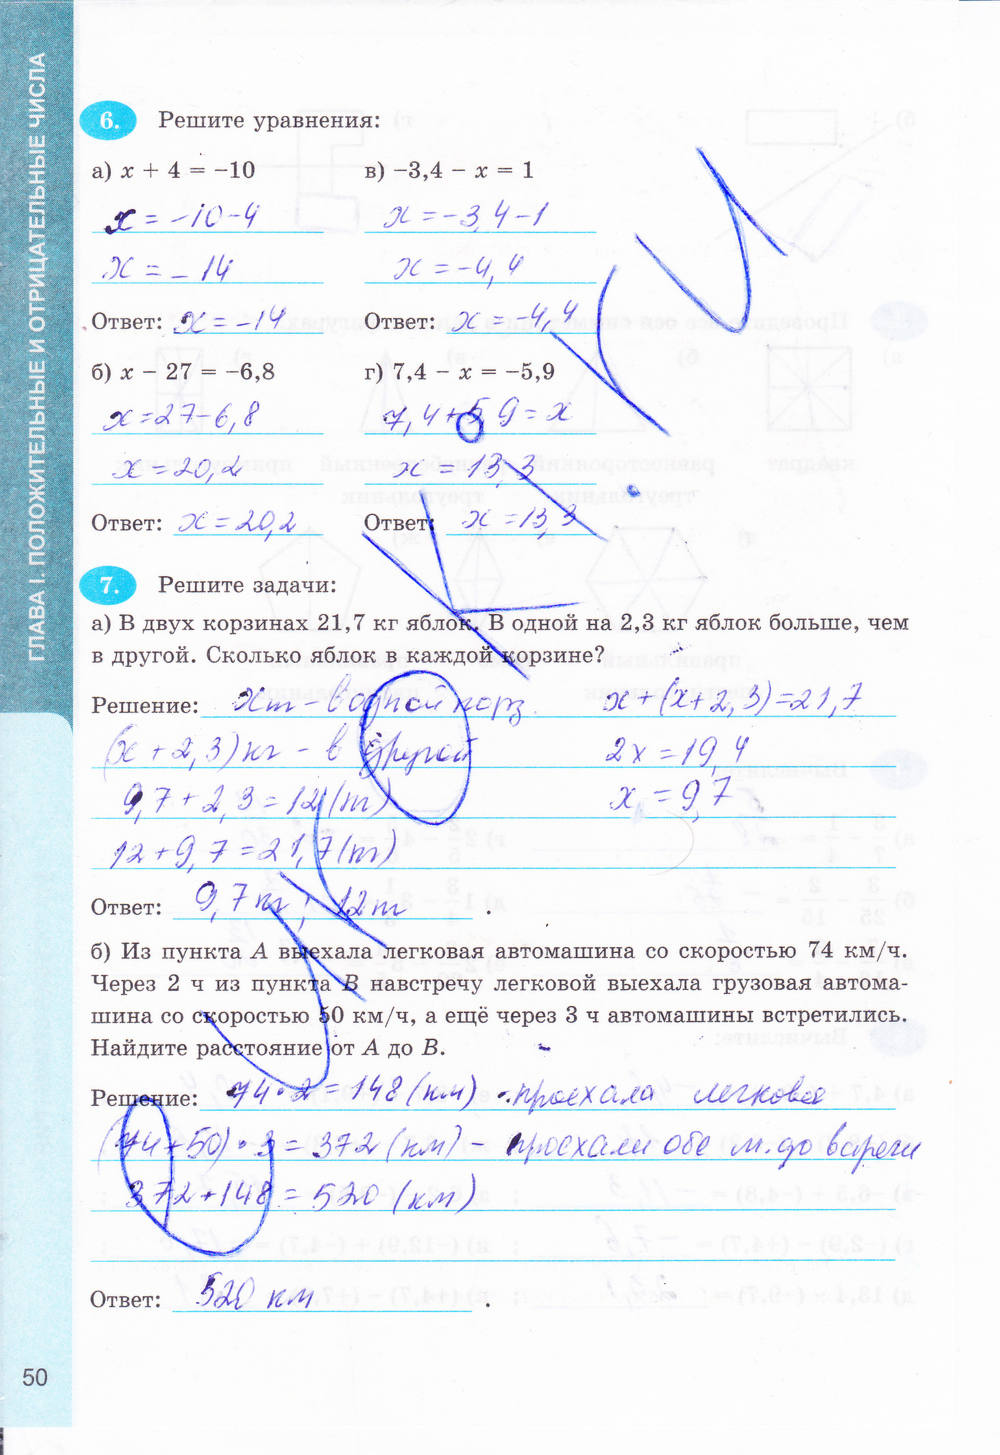 ГЛАВА I. ПОЛОЖИТЕЛЬНЫЕ И ОТРИЦАТЕЛЬНЫЕ ЧИСЛА
6. Решите уравнения:
а) x + 4 = –10
x = –10–4
x = – 14
Ответ: x = –14
в) –3,4 – x = 1
x = –3,4–1
x = –4,4
Ответ: x = –4,4
б) x – 27 = –6,8
x = 27–6,8
x = 20,2
Ответ: x = 20,2
г) 7,4 – x = –5,9
7,4+5,9 = x
x = 13,3
Ответ: x = 13,3
7. Решите задачи:
а) В двух корзинах 21,7 кг яблок. В одной на 2,3 кг яблок больше, чем
в другой. Сколько яблок в каждой корзине?
Решение: – в одной корз. x+(x+2,3)=21,7
(x + 2,3) кг – в другой 2x = 19,4
9,7 + 2,3 = 12 x = 9,7
12 + 9,7 = 21,7
Ответ: 9,7 кг; 12 .
б) Из пункта А выехала легковая автомашина со скоростью 74 км/ч.
Через 2 ч из пункта В навстречу легковой выехала грузовая автома-
шина со скоростью 50 км/ч, а ещё через 3 ч автомашины встретились.
Найдите расстояние от А до В.
Решение: 74·2 = 148 (км) проехала легковая
(74+50)·3 = 372 (км) – проехали обе м. до встречи
372+148 = 520 (км)
Ответ: 520 км .
50